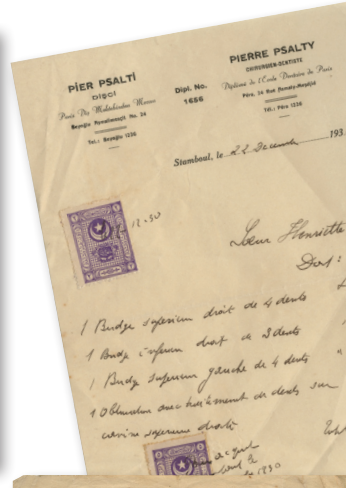 PİER PSALTİ
DİŞÇİ
Paris Diş Mektebinden Mezun
Beyoğlu No. 24
Tel.: Beyoğlu 1236
Dipl. No.
1656
PIERRE PSALTY
CHIRURGIEN-DENTISTE
Diplômé de l'Ecole Dentaire de Paris
Péra, 24 Rue
Tél.: Péra 1236
Stamboul, le 22 Décembre 193
12.30
Sœur Henriette
Doit:
1 Bridge supérieur droit de 4 dents
1 Bridge inférieur droit de 3 dents
1 Bridge supérieur gauche de 4 dents "
1 Obturation avec traitement de dents sur
canine supérieure droite
acquit
1930